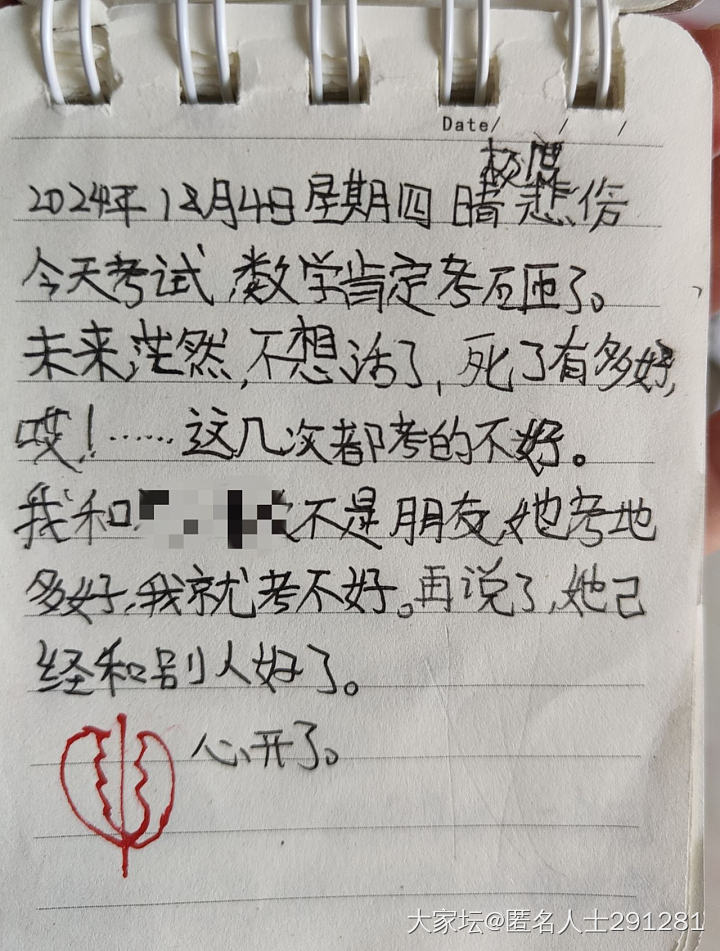 Date/ / /
极度
2024年12月4日星期四 晴 悲伤
今天考试,数学肯定考石匝了。
未来,茫然,不想活了,死了有多好,
哎!……这几次都考的不好。
我和 不是朋友,她考地
多好,我就考不好。再说了,她已
经和别人好了。
心开了。
大家坛@匿名人士291281